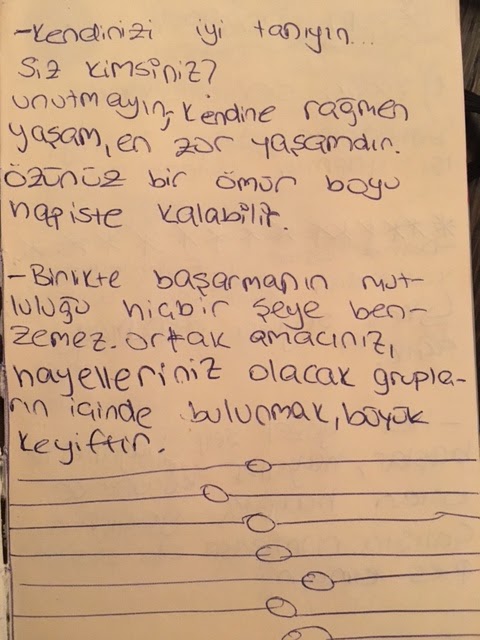 -Kendinizi iyi tanıyın...
Siz kimsiniz?
unutmayın; kendine rağmen
yaşam, en zor yaşamdır.
özünüz bir ömür boyu
hapiste kalabilir.
-Birlikte başarmanın mut-
luluğu hiçbir şeye ben-
zemez. ortak amacınız,
hayelleriniz olacak grupla-
rın içinde bulunmak, büyük
keyiftir.